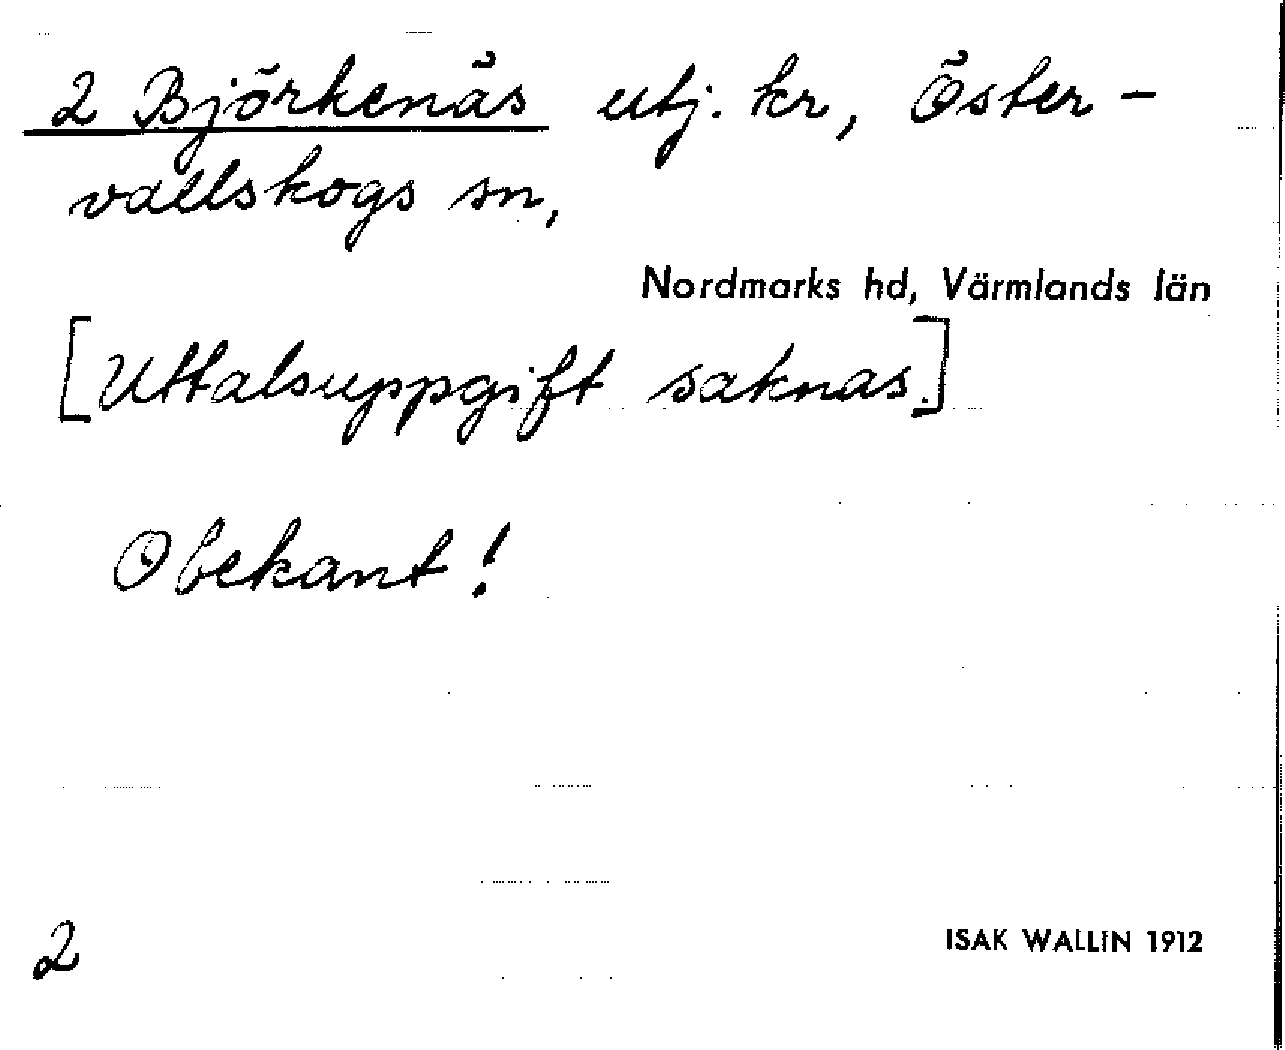 2 Björkenäs utj. kr, Öster-
vallskogs sn,
Nordmarks hd, Värmlands län
[Uttalsuppgift saknas.]
Obekant!
2
ISAK WALLIN 1912